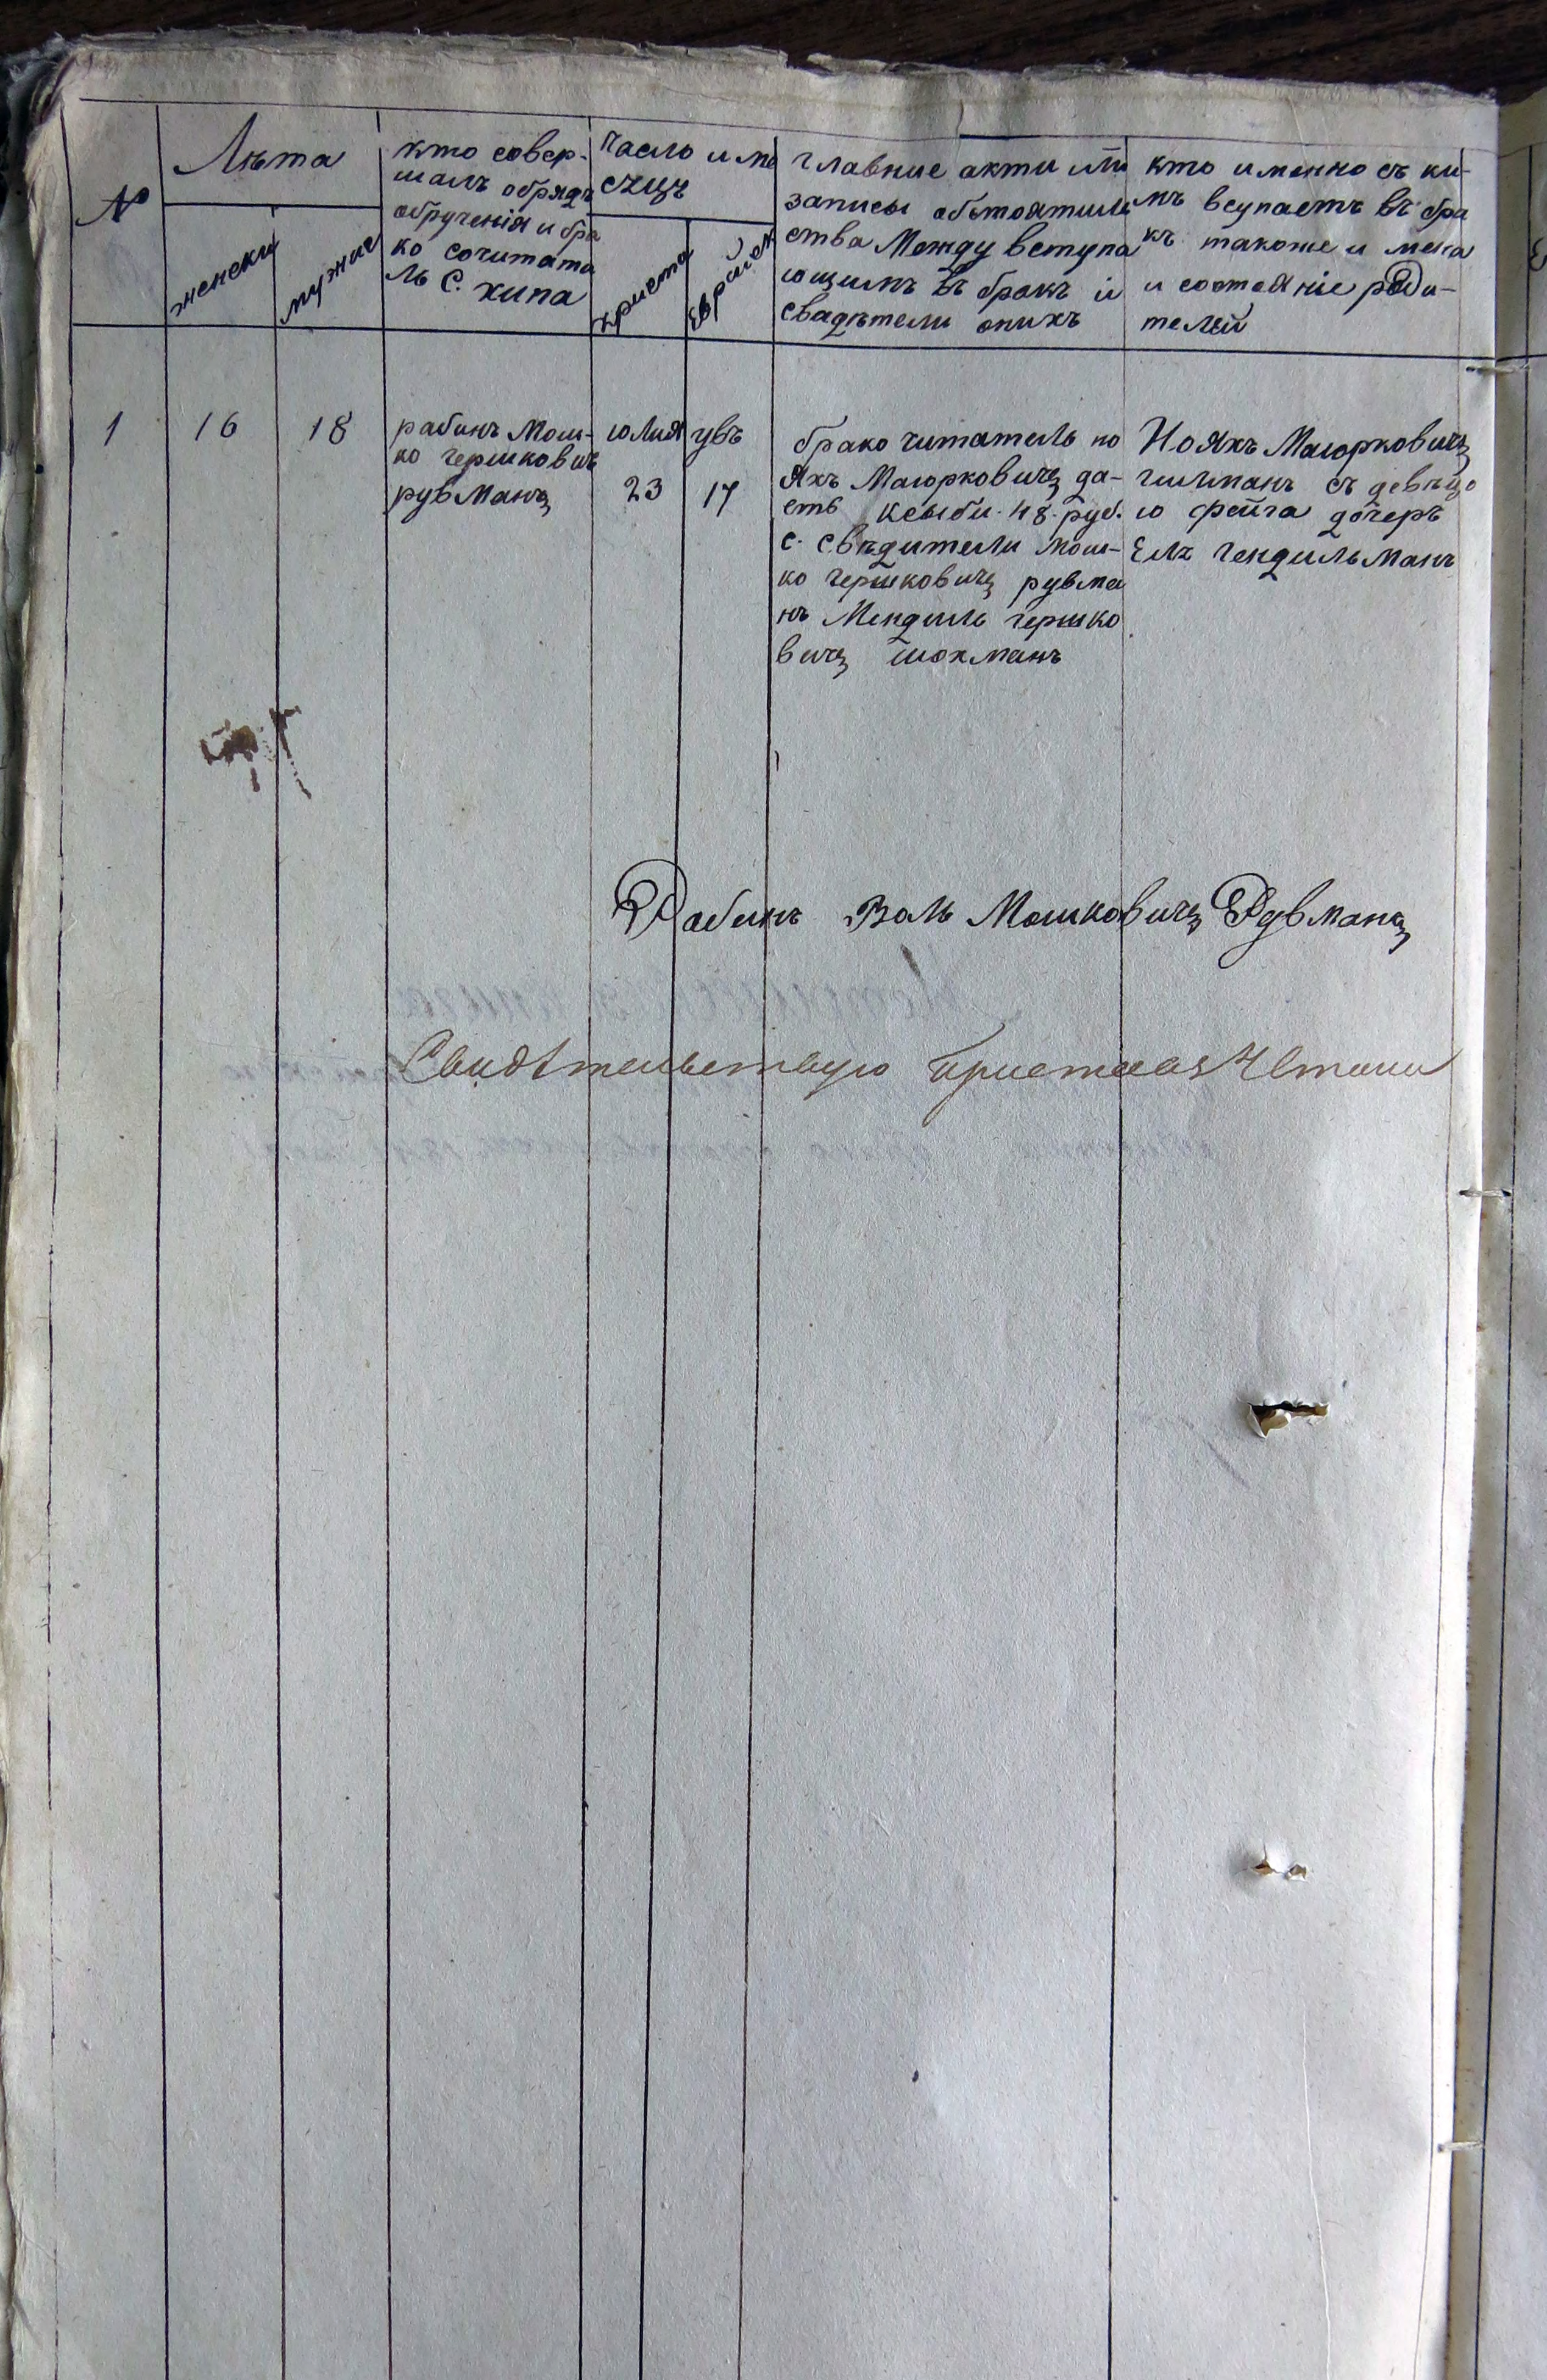 №
Лѣта
женски
мужие
кто совер-
шалъ обрядъ
обрученія и бра
ко сочитата
ль С. хипа
число и мѣ
сяцъ
христа
Еврейск
главние акти или
записы обстоятили
ства Между вступа
ющимъ въ бракъ и
свадѣтели онихъ
кто именно съ ки-
мъ всупаетъ въ бра
къ такоже и мена
и состояніе роди-
телей
1
16
18
рабинъ Мош-
ко гершковичъ
рувманъ
юлия
23
увъ
17
брако читатель но
яхъ Маюрковичъ да-
етъ ксыби 48 руб.
с. свѣдители Мош-
ко гершковичъ рувма
нъ Мендиль гершко
вичъ шохманъ
Нояхъ Маюрковичъ
гилманъ съ девицо
ю фейга дочеръ
Еля гендильманъ
Рабинъ Воль Мошковичъ Рувманъ
Свидѣтельствую